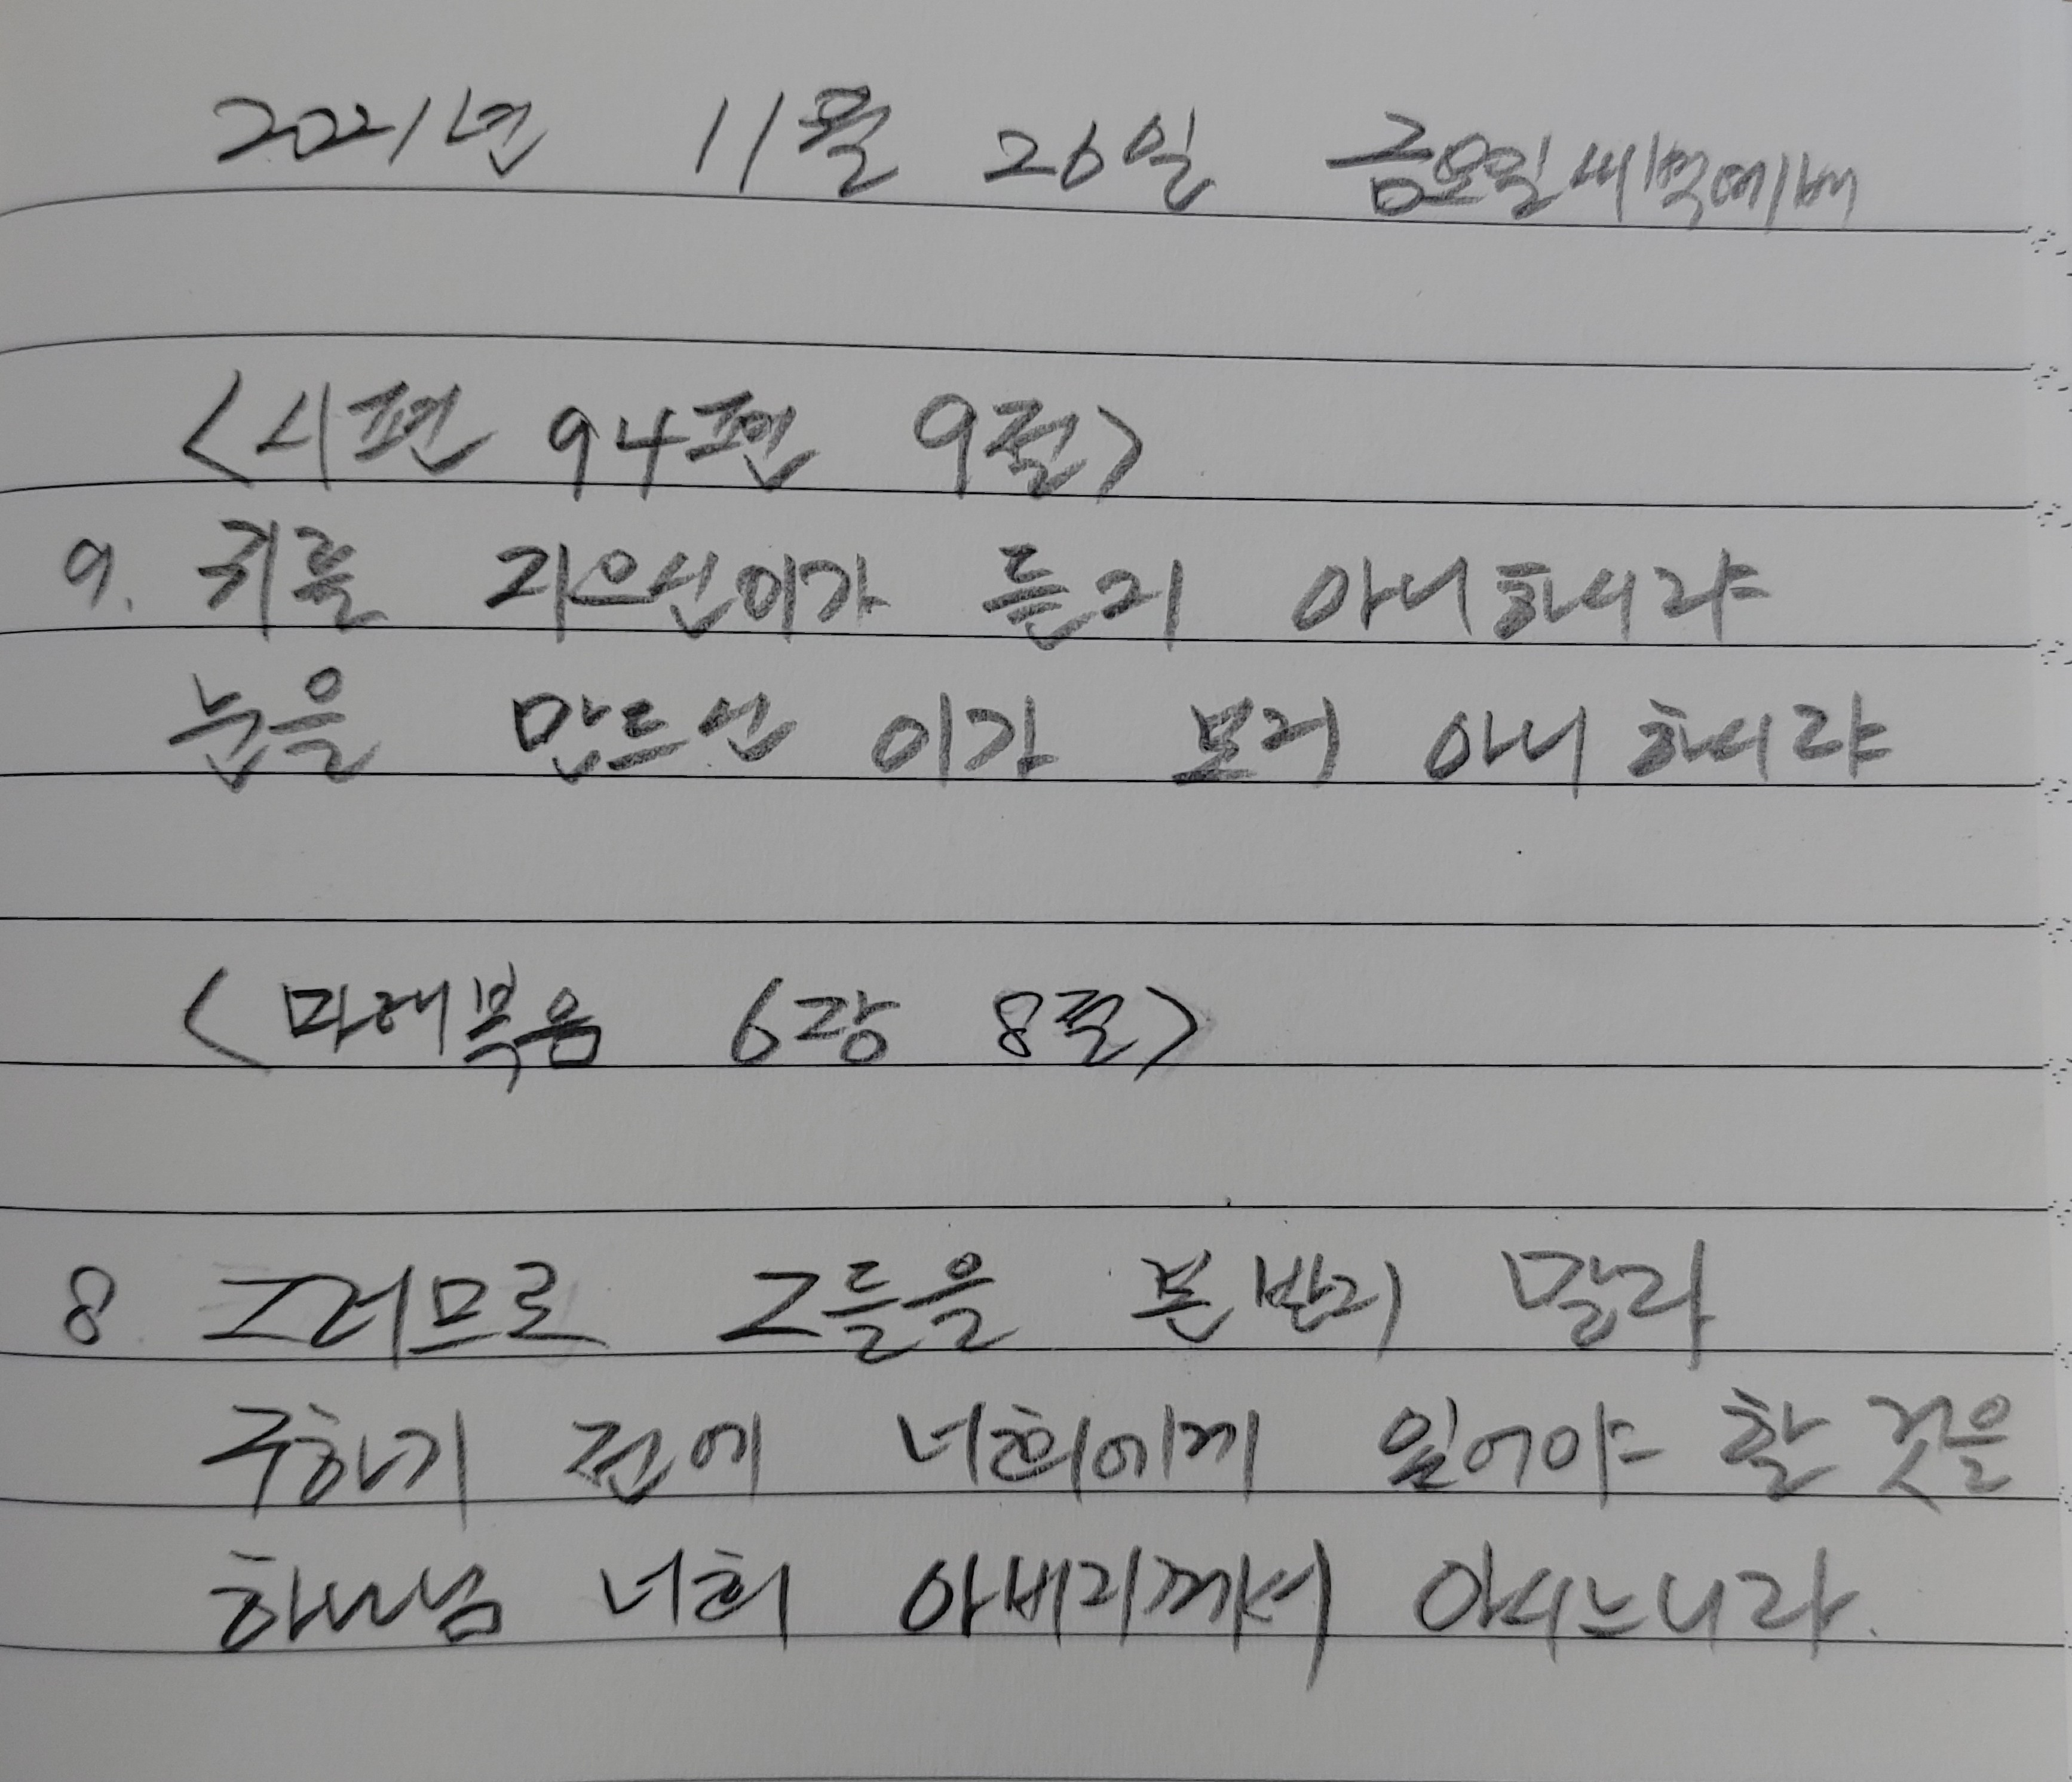 2021년 11월 26일 금요일새벽예배
<시편 94편 9절>
9. 귀를 지으신이가 듣지 아니하시랴
눈을 만드신 이가 보지 아니하시랴
<마태복음 6장 8절>
8 그러므로 그들을 본받지 말라
구하기 전에 너희에게 있어야 할 것을
하나님 너희 아버지께서 아시느니라.